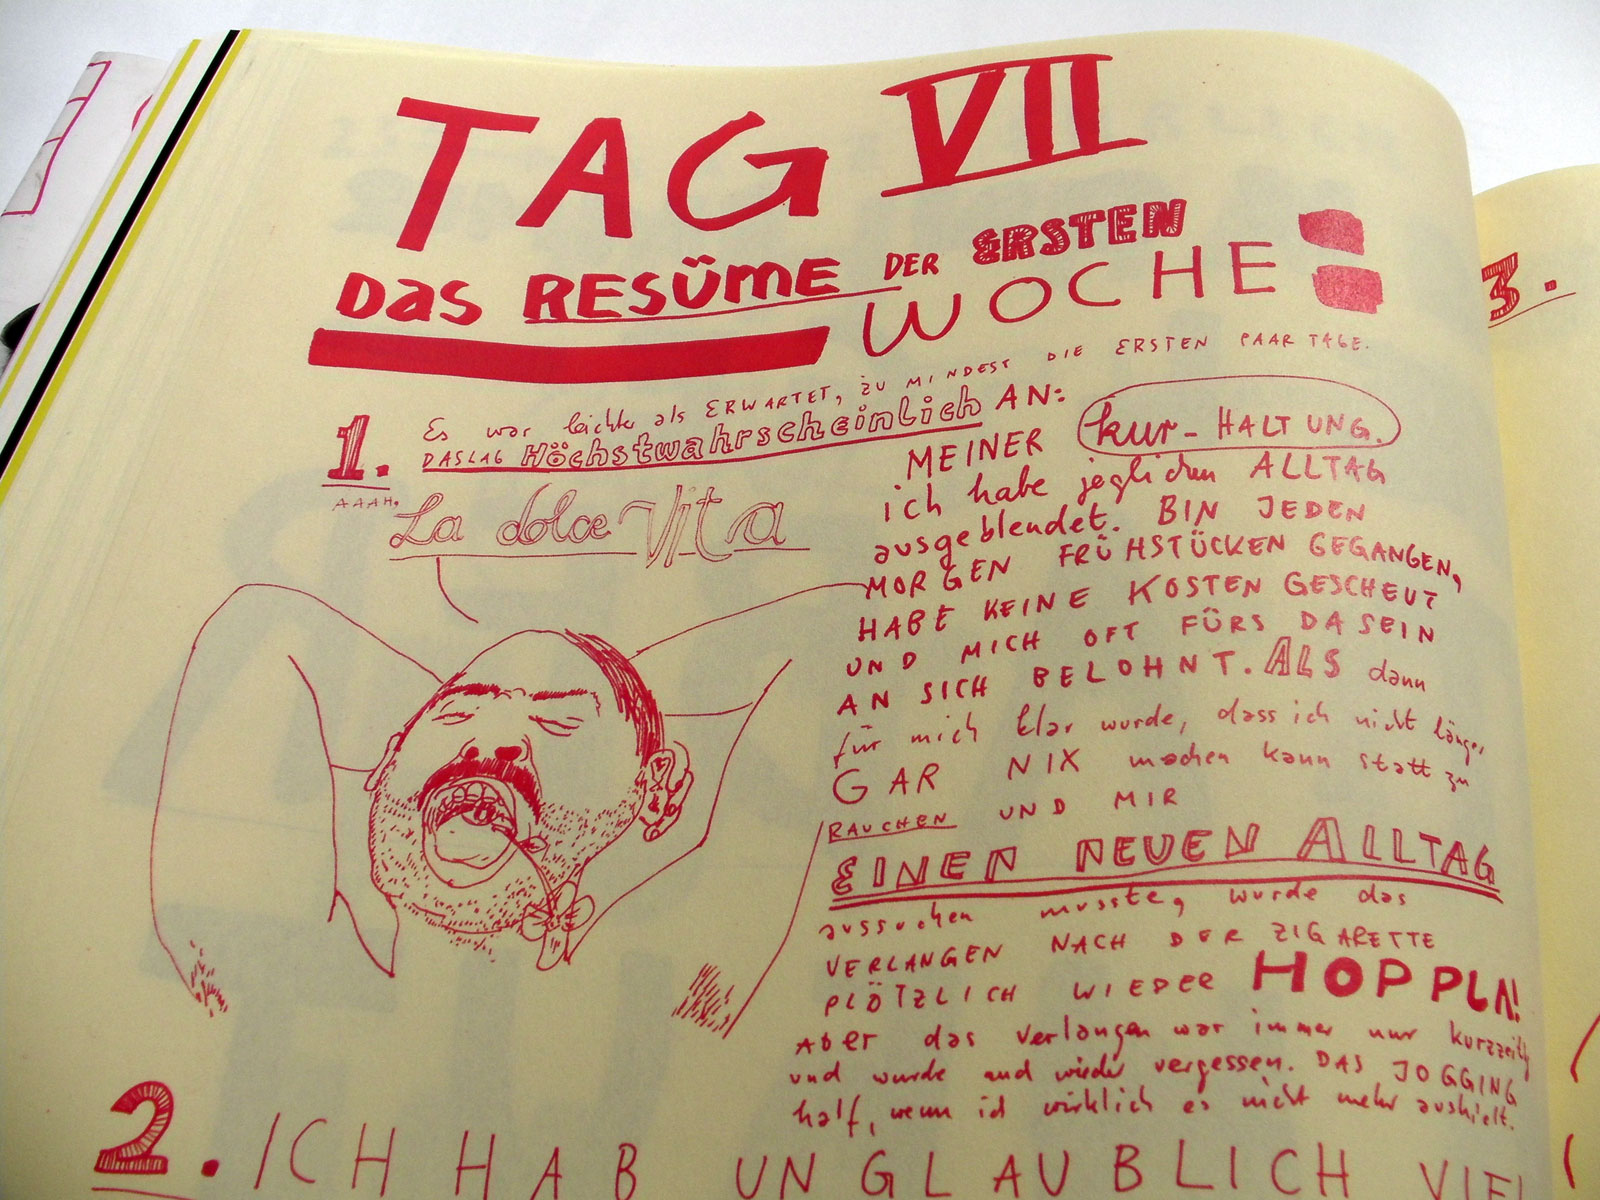 TAG VII
DAS RESÜME DER ERSTEN
WOCHE:
1. Es war leichter als ERWARTET, ZU MINDEST DIE ERSTEN PAAR TAGE.
DAS LAG HÖCHSTWAHRSCHEINLICH AN:
MEINER kur-HALTUNG.
AAAH,
La dolce Vita
ich habe jeglichen ALLTAG
ausgeblendet. BIN JEDEN
MORGEN FRÜHSTÜCKEN GEGANGEN,
HABE KEINE KOSTEN GESCHEUT
UND MICH OFT FÜRS DASEIN
AN SICH BELOHNT. ALS dann
für mich klar wurde, dass ich nicht länger
GAR NIX machen kann statt zu
RAUCHEN UND MIR
EINEN NEUEN ALLTAG
aussuchen musste, wurde das
VERLANGEN NACH DER ZIGARETTE
PLÖTZLICH WIEDER HOPPLA!
ABER das Verlangen war immer nur kurzzeitig
und wurde und wieder vergessen. DAS JOGGING
half, wenn ich wirklich es nicht mehr aushielt.
2. ICH HAB UNGLAUBLICH VIEL
3.